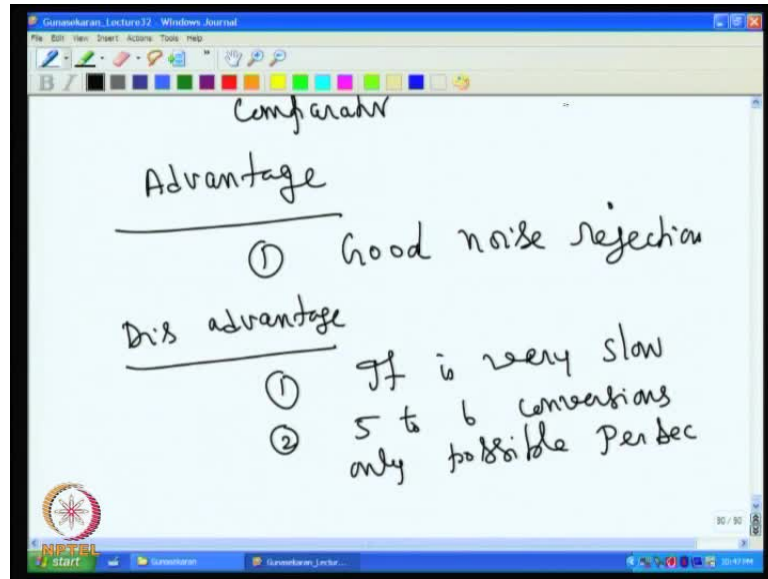 Gunasekaran_Lecture32 - Windows Journal
File Edit View Insert Actions Tools Help
B I
Comparator
Advantage
① Good noise rejection
Dis advantage
① It is very slow
② 5 to 6 conversions
only possible Per sec
90 / 90
NPTEL
start Gunasekaran Gunasekaran_Lectur... 10:47 PM